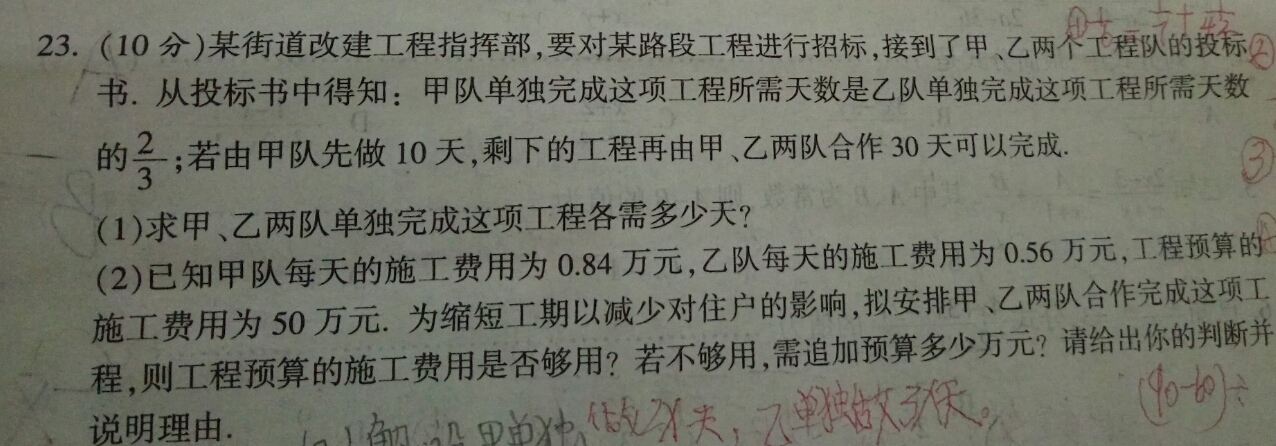 23. (10 分)某街道改建工程指挥部,要对某路段工程进行招标,接到了甲、乙两个工程队的投标
书. 从投标书中得知: 甲队单独完成这项工程所需天数是乙队单独完成这项工程所需天数
的2/3;若由甲队先做 10 天,剩下的工程再由甲、乙两队合作 30 天可以完成.
(1)求甲、乙两队单独完成这项工程各需多少天?
(2)已知甲队每天的施工费用为 0.84 万元,乙队每天的施工费用为 0.56 万元,工程预算的
施工费用为 50 万元. 为缩短工期以减少对住户的影响,拟安排甲、乙两队合作完成这项工
程,则工程预算的施工费用是否够用? 若不够用,需追加预算多少万元? 请给出你的判断并
说明理由.